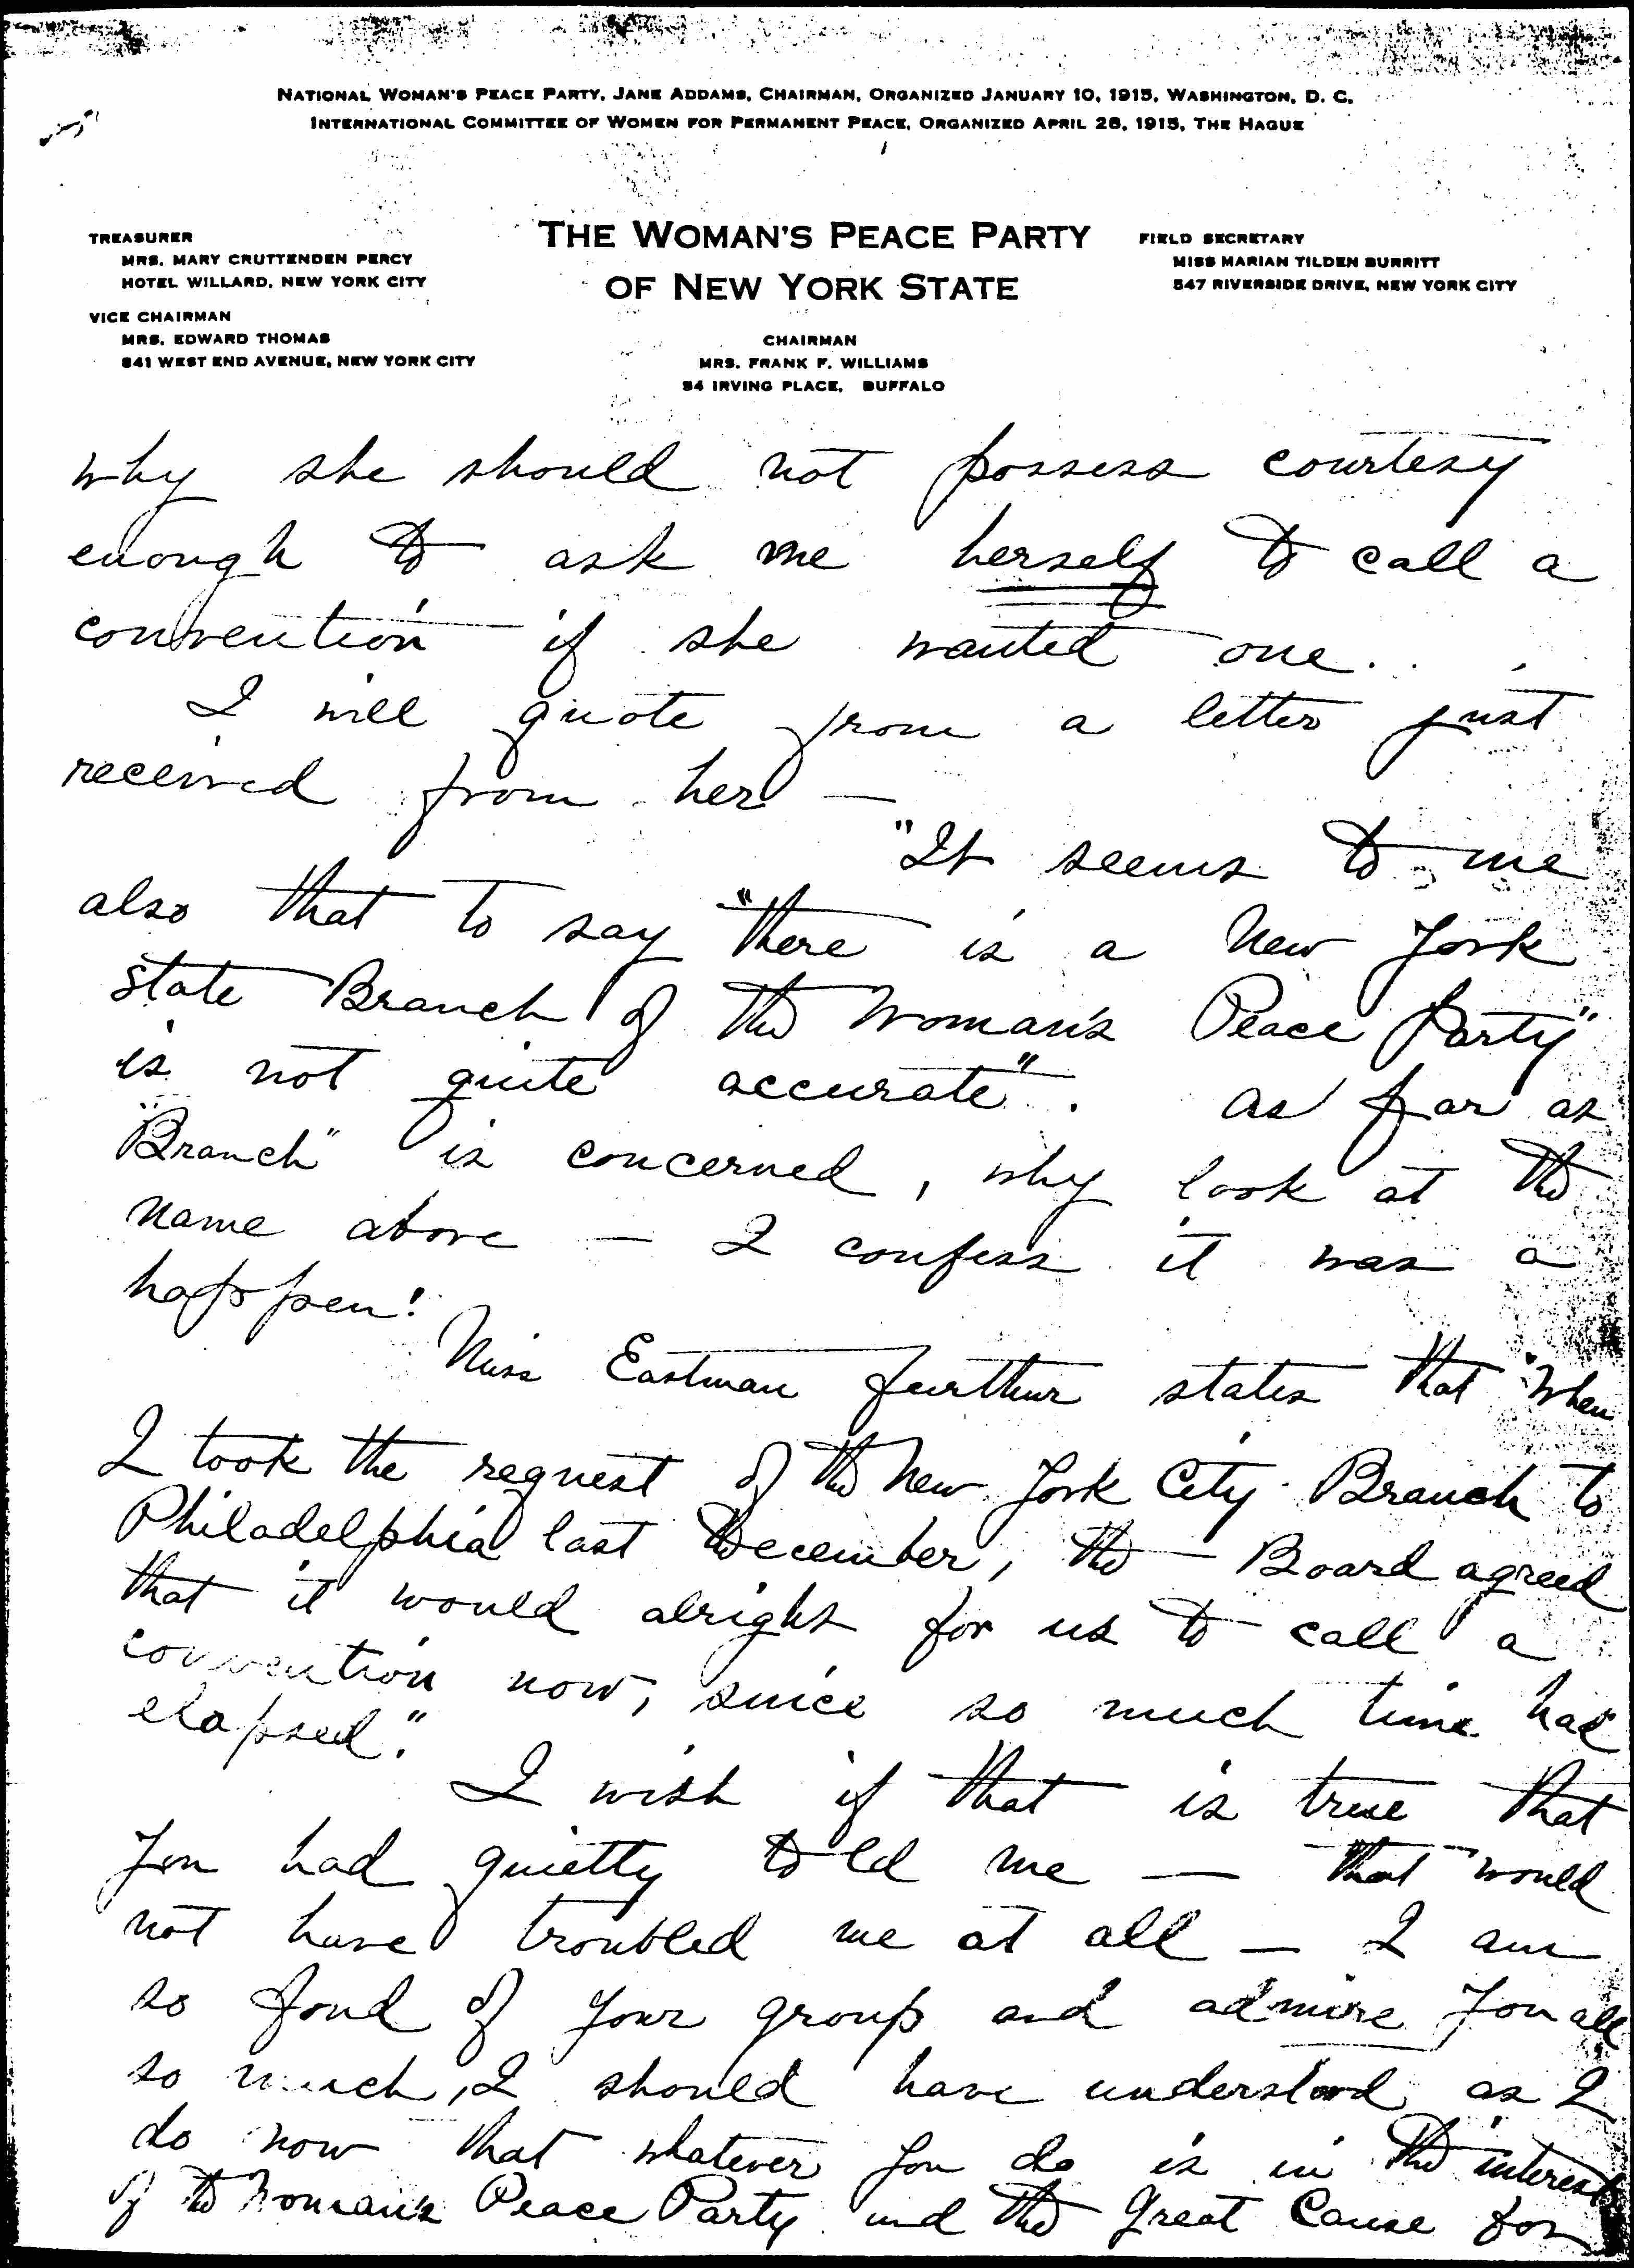 NATIONAL WOMAN'S PEACE PARTY, JANE ADDAMS, CHAIRMAN, ORGANIZED JANUARY 10, 1915, WASHINGTON, D. C.
INTERNATIONAL COMMITTEE OF WOMEN FOR PERMANENT PEACE, ORGANIZED APRIL 28, 1915, THE HAGUE
TREASURER
MRS. MARY CRUTTENDEN PERCY
HOTEL WILLARD, NEW YORK CITY
VICE CHAIRMAN
MRS. EDWARD THOMAS
841 WEST END AVENUE, NEW YORK CITY
THE WOMAN'S PEACE PARTY
OF NEW YORK STATE
CHAIRMAN
MRS. FRANK F. WILLIAMS
54 IRVING PLACE, BUFFALO
FIELD SECRETARY
MISS MARIAN TILDEN BURRITT
547 RIVERSIDE DRIVE, NEW YORK CITY
why she should not possess courtesy
enough to ask me herself to call a
convention if she wanted one.
I will quote from a letter just
received from her —
"It seems to me
also that to say "there is a New York
State Branch of the Woman's Peace Party"
is not quite accurate". As far as
"Branch" is concerned, why look at the
name above — I confess it was a
happen!
Miss Eastman further states that "When
I took the request of the New York City Branch to
Philadelphia last December, the Board agreed
that it would alright for us to call a
convention now, since so much time had
elapsed."
I wish if that is true that
you had quietly told me — that would
not have troubled me at all — I am
so fond of your group and admire you all
so much, I should have understood as I
do now that whatever you do is in the interest
of the Woman's Peace Party and the Great Cause for